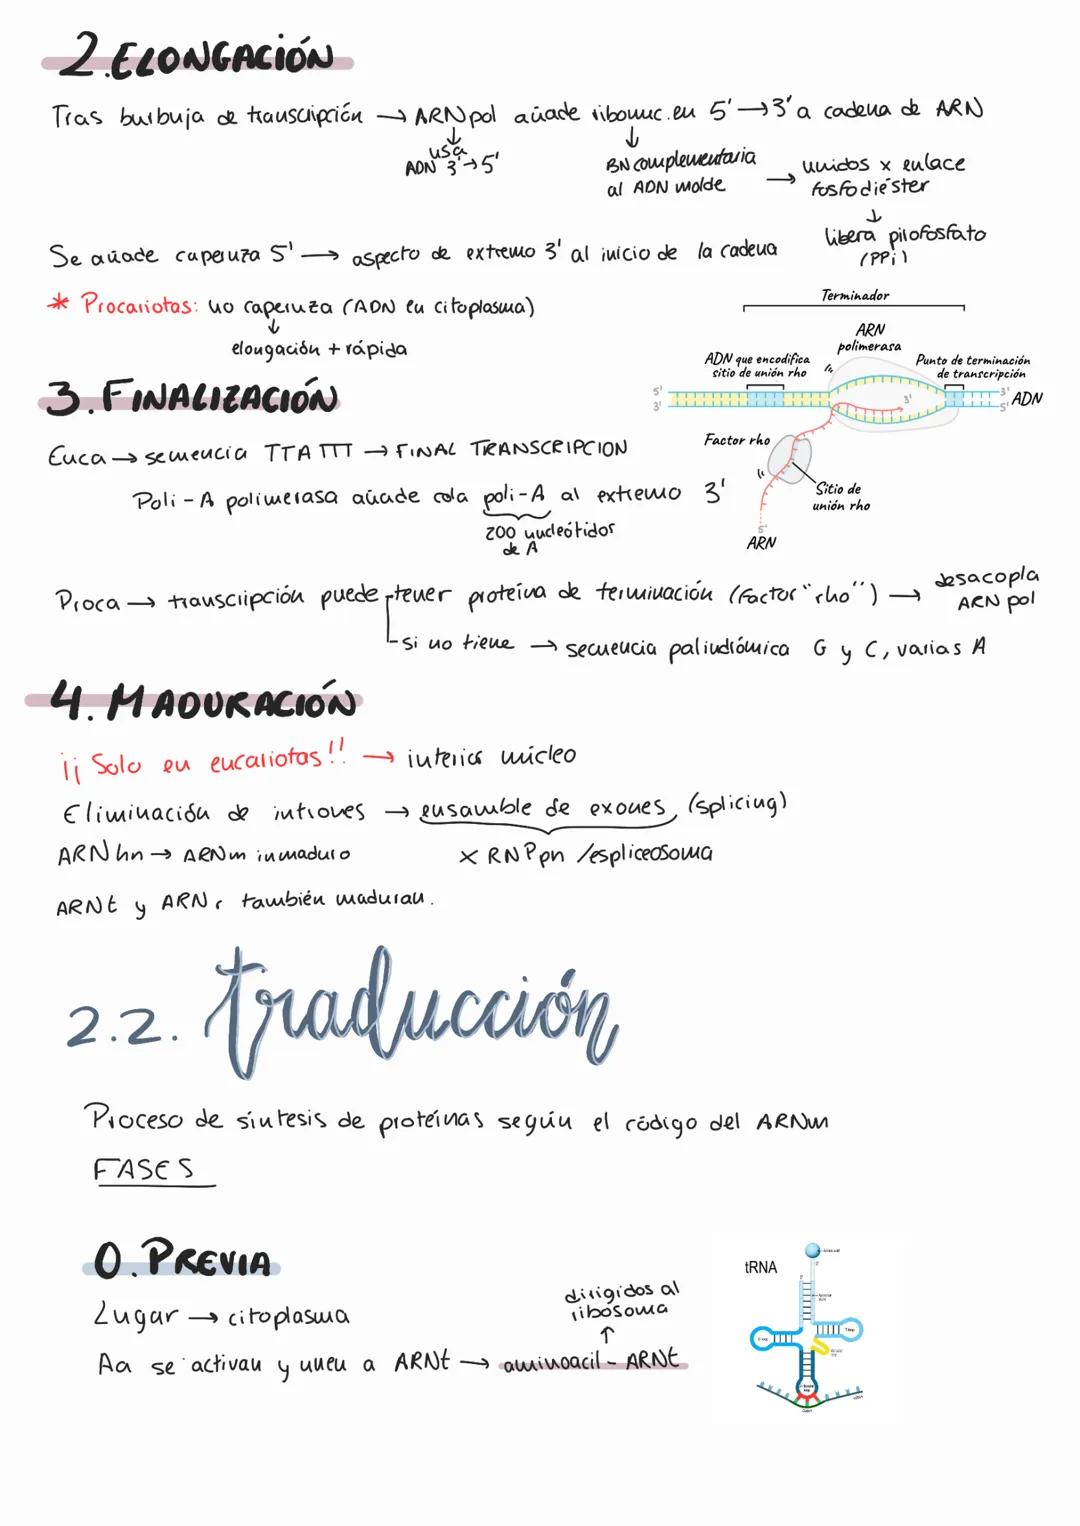 2. ELONGACIÓN
Tras burbuja de transcripción → ARN pol añade ribonuc. en 5' → 3' a cadena de ARN
↓ usa
ADN 3' → 5'
↓
BN complementaria
al ADN molde
→ unidos x enlace
fosfodiéster
↓
libera pirofosfato
(PPi)
Se añade caperuza 5' → aspecto de extremo 3' al inicio de la cadena
* Procariotas: no caperuza (ADN en citoplasma)
↓
elongación + rápida
Terminador
ARN
polimerasa
ADN que encodifica
sitio de unión rho
Punto de terminación
de transcripción
5'
3'
3'
3'
5'
ADN
Factor rho
Sitio de
unión rho
5'
ARN
3. FINALIZACIÓN
Euca → secuencia TTATTT → FINAL TRANSCRIPCION
Poli-A polimerasa añade cola poli-A al extremo 3'
200 nucleótidos
de A
Proca → transcripción puede tener proteína de terminación (Factor "rho") → desacopla
ARN pol
si no tiene → secuencia palindrómica G y C, varias A
4. MADURACIÓN
¡¡ Solo en eucariotas!! → interior núcleo
Eliminación de intrones → ensamble de exones (splicing)
ARN hn → ARNm inmaduro
x RNPpn /espliceosoma
ARNt y ARNr también maduran.
2.2. traducción
Proceso de síntesis de proteínas según el código del ARNm
FASES
0. PREVIA
Lugar → citoplasma
dirigidos al
ribosoma
↑
Aa se activan y unen a ARNt → aminoacil-ARNt
tRNA